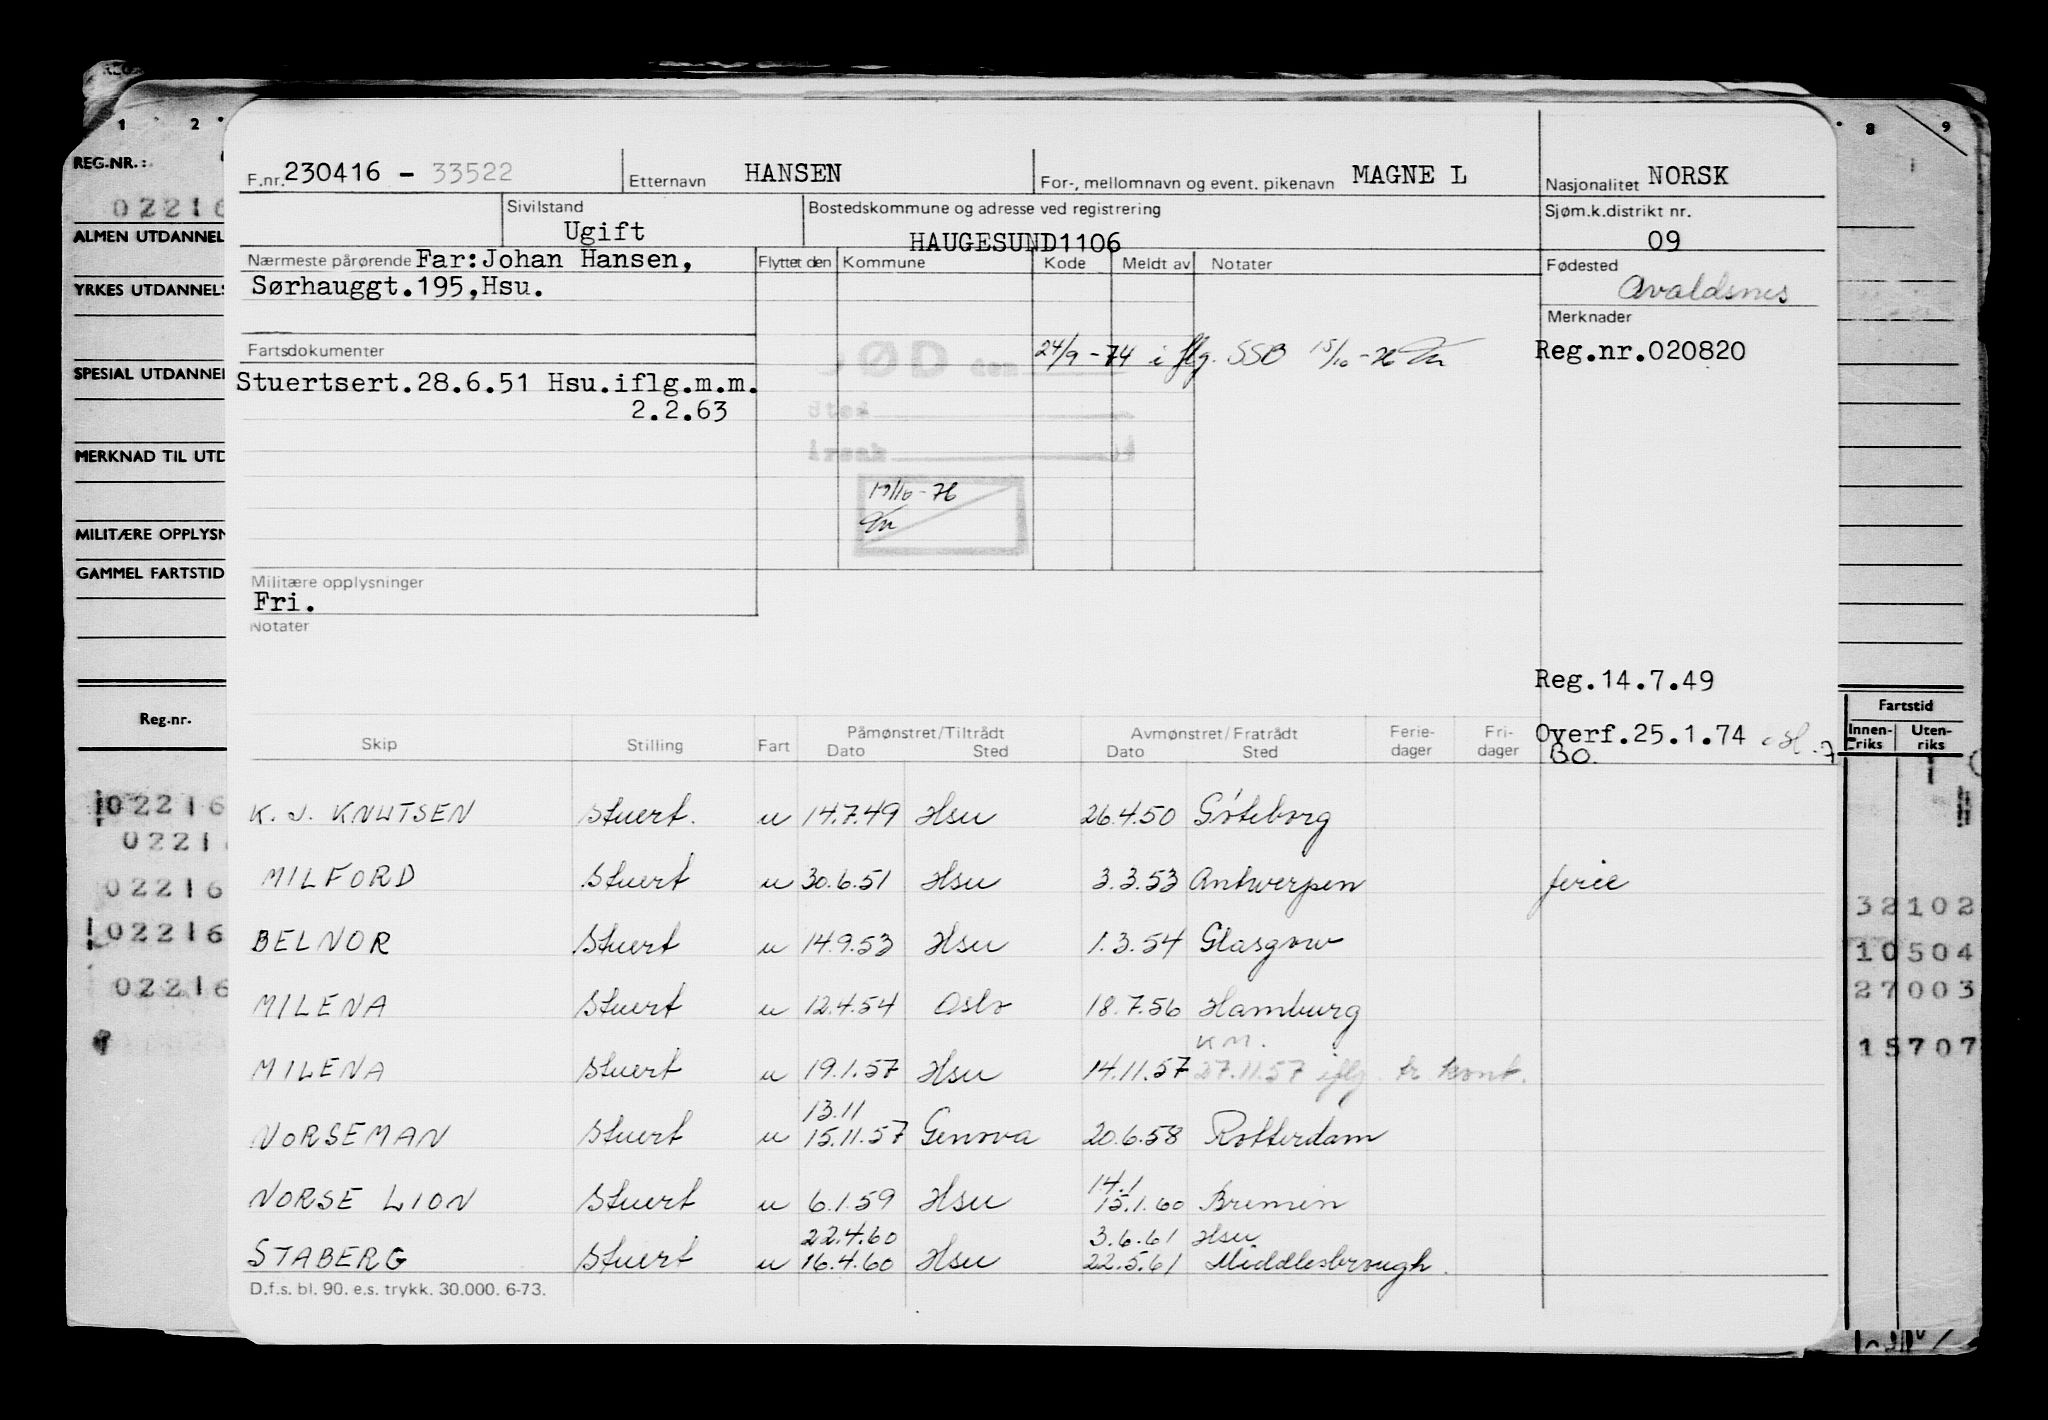 1 2 8 9
REG.NR.:
02216
ALMEN UTDANNEL
YRKES UTDANNELS
SPESIAL UTDANNEL
MERKNAD TIL UTD
MILITÆRE OPPLYSN
GAMMEL FARTSTID
Reg.nr.
02216
0221
02216
02216
02216
F.nr. 230416 - 33522 Etternavn HANSEN For-, mellomnavn og event. pikenavn MAGNE L Nasjonalitet NORSK
Sivilstand Ugift Bostedskommune og adresse ved registrering HAUGESUND1106 Sjøm.k.distrikt nr. 09
Nærmeste pårørende Far:Johan Hansen,
Sørhauggt.195,Hsu.
Flyttet den Kommune Kode Meldt av Notater
Fødested Avaldsnes
Merknader
Reg.nr.020820
Fartsdokumenter
Stuertsert.28.6.51 Hsu.iflg.m.m.
2.2.63
DØD den 24/9-74 i flg. SSB 15/10-76
Sted
Årsak
19/10-76
Militære opplysninger
Fri.
Notater
Reg.14.7.49
Overf.25.1.74
BO.
Skip Stilling Fart Påmønstret/Tiltrådt Dato Sted Avmønstret/Fratrådt Dato Sted Ferie-dager Fri-dager
K. J. KNUTSEN Stuert. u 14.7.49 Hsu 26.4.50 Göteborg
MILFORD Stuert u 30.6.51 Hsu 3.3.53 Antwerpen ferie
BELNOR Stuert u 14.9.53 Hsu 1.3.54 Glasgow
MILENA Stuert u 12.4.54 Oslo 18.7.56 Hamburg
KM.
MILENA Stuert u 19.1.57 Hsu 14.11.57 27.11.57 iflg. tr. kont.
13.11
NORSEMAN Stuert u 15.11.57 Genova 20.6.58 Rotterdam
14.1
NORSE LION Stuert u 6.1.59 Hsu 15.1.60 Bremen
22.4.60 3.6.61 Hsu
STABERG Stuert u 16.4.60 Hsu 22.5.61 Middlesbrough.
D.f.s. bl. 90. e.s. trykk. 30.000. 6-73.
Fartstid
Innen-riks Uten-riks
32102
10504
27003
15707